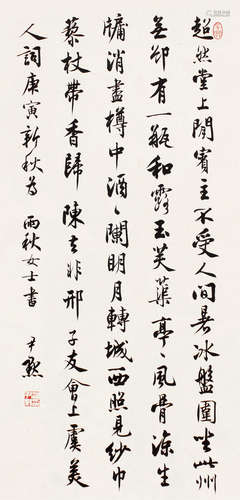 超然堂上閒賓主不受人間暑冰盤圍坐此州
無却有一瓶和露玉芙蕖亭〻風骨涼生
牖消盡樽中酒〻闌明月轉城西照見紗巾
藜杖帶香歸 陳去非邢子友會上虞美
人詞庚寅新秋為 雨秋女士書 尹默